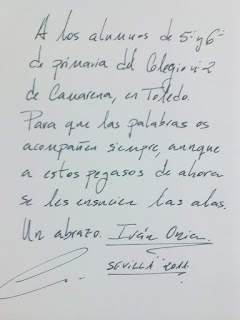 A los alumnos de 5º y 6º
de primaria del Colegio nº 2
de Camarena, en Toledo.
Para que las palabras os
acompañen siempre, aunque
a estos pegasos de ahora
se les ensucien las alas.
Un abrazo. Iván Onia
SEVILLA 2011